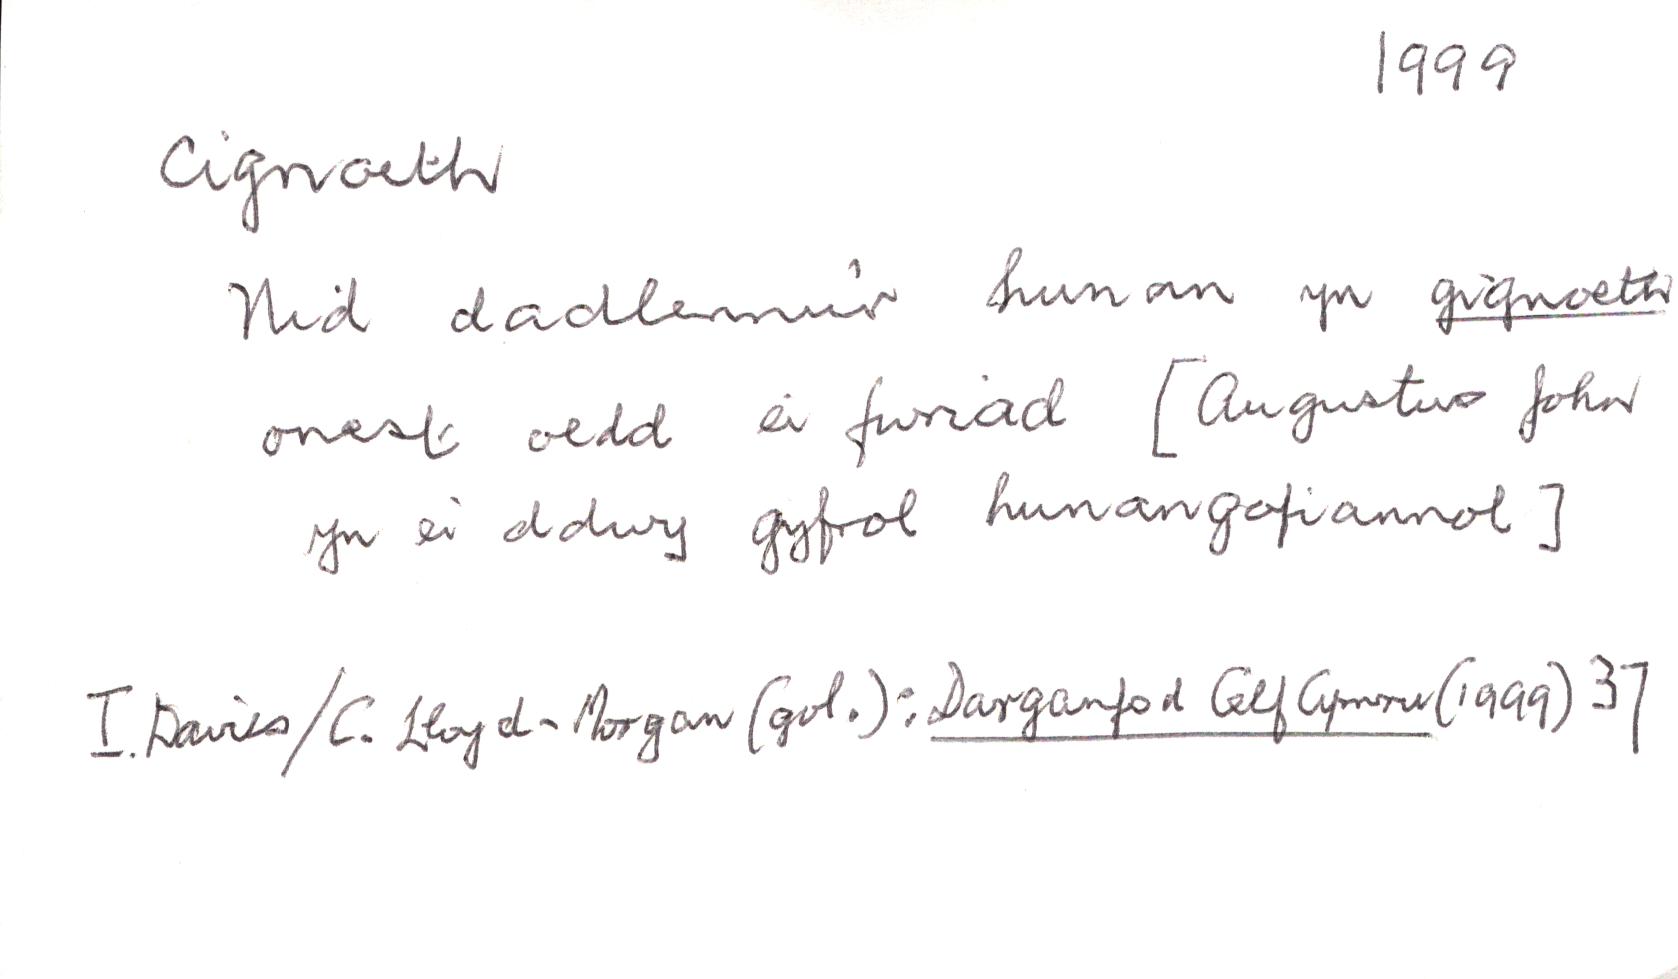 1999
Cignoeth
Nid dadlennu'r hunan yn gignoeth
onest oedd ei fwriad [Augustus John
yn ei ddwy gyfrol hunangofiannol]
I. Davies/C. Lloyd-Morgan (gol.): Darganfod Celf Cymru (1999) 37